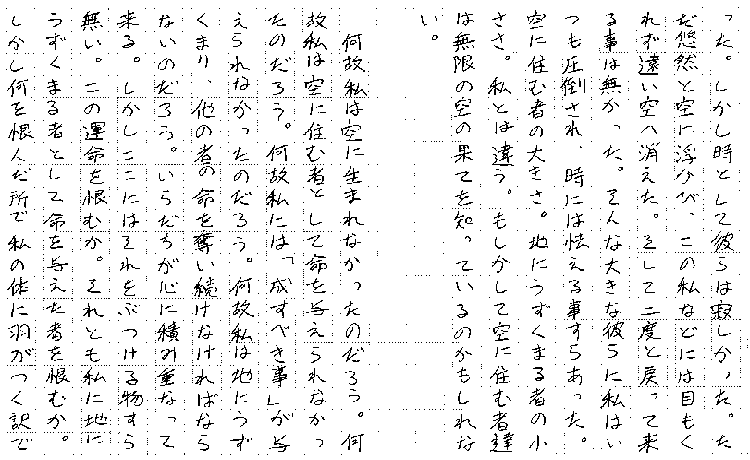 った。しかし時として彼らは寂しかった。た
だ悠然と空に浮かび、この私などには目もく
れず遠い空へ消えた。そして二度と戻って来
る事は無かった。そんな大きな彼らに私はい
つも圧倒され、時には怯える事すらあった。
空に住む者の大きさ。地にうずくまる者の小
ささ。私とは違う。もしかして空に住む者達
は無限の空の果てを知っているのかもしれな
い。
何故私は空に生まれなかったのだろう。何
故私は空に住む者として命を与えられなかっ
たのだろう。何故私には「成すべき事」が与
えられなかったのだろう。何故私は地にうず
くまり、他の者の命を奪い続けなければなら
ないのだろう。いらだちが心に積み重なって
来る。しかしここにはそれをぶつける物すら
無い。この運命を恨むか。それとも私に地に
うずくまる者として命を与えた者を恨むか。
しかし何を恨んだ所で私の体に羽がつく訳で